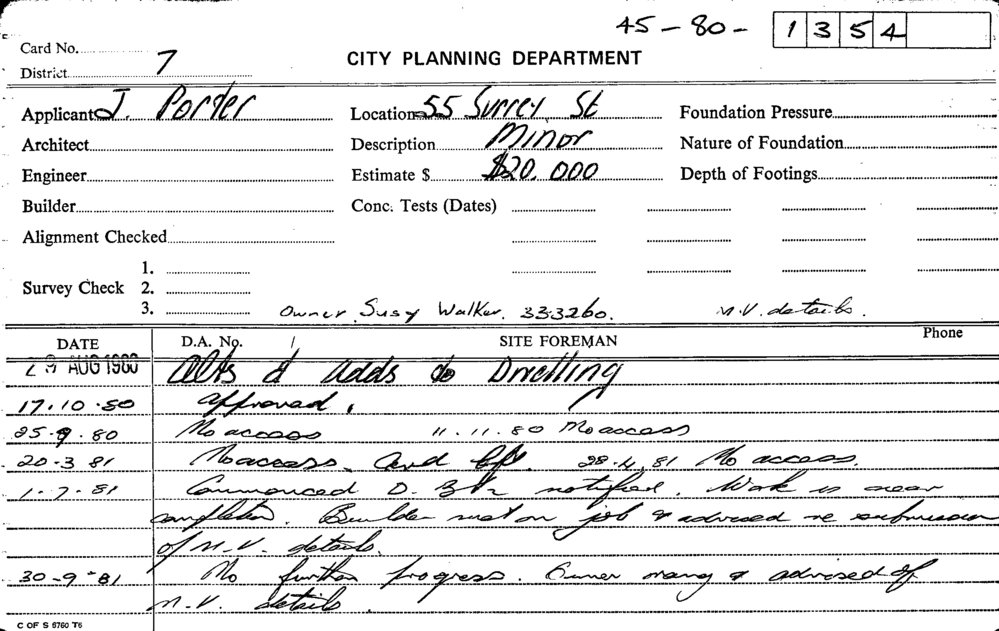 45-80- 1354
Card No.
District 7
CITY PLANNING DEPARTMENT
Applicant J. Porter Location 55 Surrey St Foundation Pressure
Architect Description Minor Nature of Foundation
Engineer Estimate $ $20,000 Depth of Footings
Builder Conc. Tests (Dates)
Alignment Checked
1.
Survey Check 2.
3. Owner Susy Walker. 333260. M.V. details.
DATE D.A. No. SITE FOREMAN Phone
29 AUG 1980 Alts & Adds to Dwelling
17.10.80 Approved.
25.9.80 No access 11.11.80 No access
20-3 81 No access. Card left. 28.4.81 No access.
1.7.81 Commenced D. notified. Work is near
completion. Builder met on job & advised re submission
of M.V. details.
30-9-81 No further progress. Owner rang & advised of
M.V. details.
C OF S 6760 T6